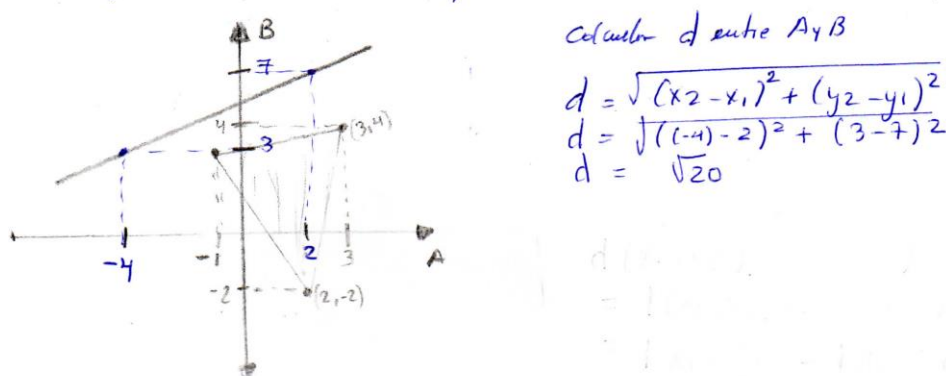 B
7
4
(3,4)
3
-4
-1
2
3
A
-2
(2,-2)
Calcular d entre A y B
d = √(x2-x1)² + (y2-y1)²
d = √((-4)-2)² + (3-7)²
d = √20